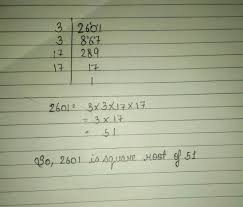 3 | 2601
3 | 867
17 | 289
17 | 17
1
2601 = 3×3×17×17
= 3×17
= 51
So, 2601 is square root of 51